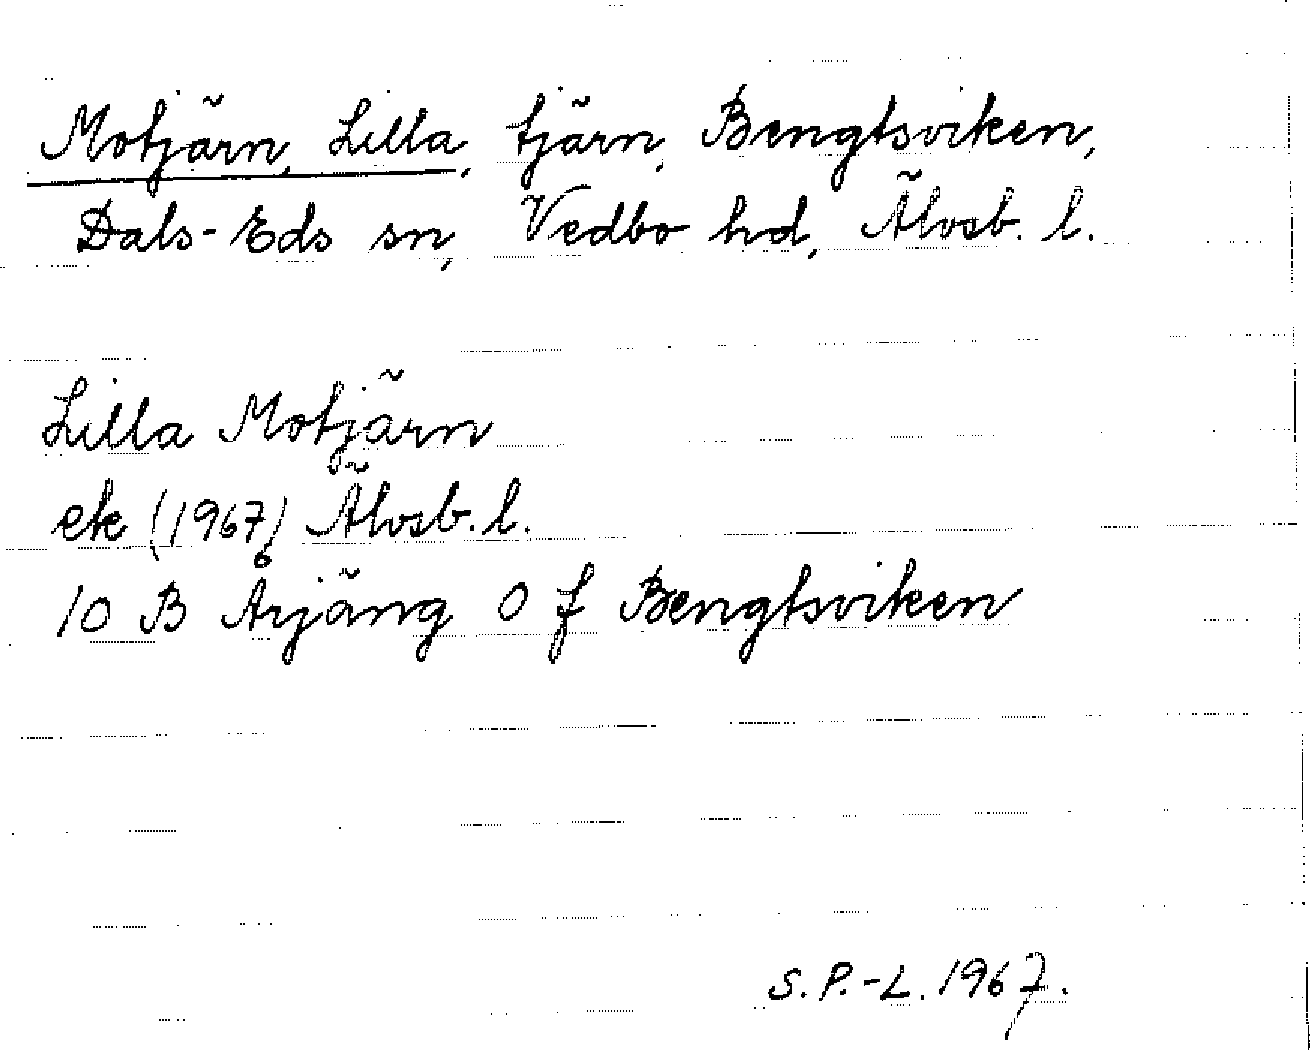 Motjärn, Lilla, tjärn, Bengtsviken,
Dals-Eds sn, Vedbo hd, Älvsb. l.
Lilla Motjärn
ek (1967) Älvsb. l.
10 B Årjäng O f Bengtsviken
S. P.-L. 1967.